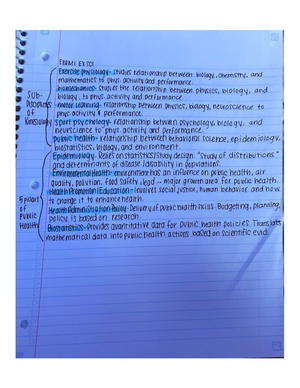 EXAM 1 EXSCI
Exercise physiology- studies relationship between biology, chemistry, and
mathematics to phys. activity and performance.
Biomechanics- studies the relationship between physics, biology, and
biology, to phys. activity and performance.
Motor Learning- relationship between physics, biology, neuroscience to
phys activity & performance.
Sport psychology- relationship between psychology, biology, and
neuroscience to "phys. activity and performance."
Public health- relationship between behavioral science, epidemiology,
biostatistics, biology, and environment.
Sub-
Disciplines
of
Kinesiology
Epidemiology- Relies on statistics/study design. "Study of distributions"
and determinants of disease/disability in populations.
Environmental Health- environment has an influence on public health, air
quality, pollution, food safety, lead - major growth area for public health.
Health Promotion/Education- Involves social justice, human behavior, and how
to change it to enhance health.
Health Administration/Policy- Delivery of public health skills. Budgeting, planning,
policy is based on research.
Biostatistics- Provides quantitative data for public health policies. Translate
mathematical data into public health actions based on scientific evid.
5 pillars
of
Public
Health